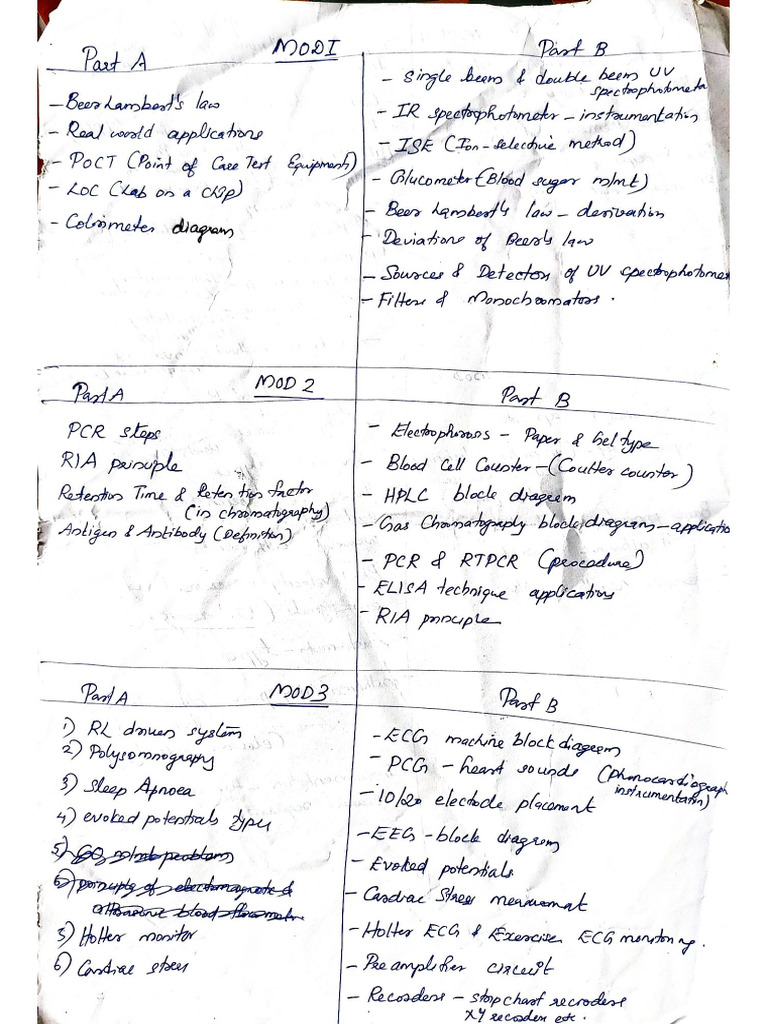 MOD I
Part A
- Beer Lambert's law
- Real world applications
- POCT (Point of Care Test Equipments)
- LOC (Lab on a chip)
- Colorimeter diagram
Part B
- Single beam & double beem UV
spectrophotometer
- IR spectrophotometer - instrumentation
- ISE (Ion-selective method)
- Glucometer (Blood sugar m/mt)
- Beer Lambert's law - derivation
- Deviations of Beer's law
- Sources & Detectors of UV spectrophotomet
- Filters & Monochromators.
MOD 2
Part A
PCR steps
RIA principle
Retention Time & Retention factor
(in chromatography)
Antigen & Antibody (Definition)
Part B
- Electrophorosis - Paper & Gel type
- Blood Cell Counter - (Coulter counter)
- HPLC block diagram
- Gas Chromatography block diagram - applicatio
- PCR & RTPCR (procedure)
- ELISA technique applications
- RIA principle
MOD 3
Part A
1) RL driven system
2) Polysomnography
3) Sleep Apnoea
4) evoked potentials types
5) CO m/mt problems
6) principle of electromagnetic &
ultrasonic blood flowmeter
5) Holter monitor
6) Cardiac stress
Part B
- ECG machine block diagram
- PCG - heart sounds (phonocardiograph
instrumentation)
- 10/20 electode placement
- EEG - block diagram
- Evoked potentials
- Cardiac stress measurement
- Holter ECG & Exercise ECG monitoring.
- Pre amplifier circuit
- Recorders - stop chart recroders
XY recorder etc.